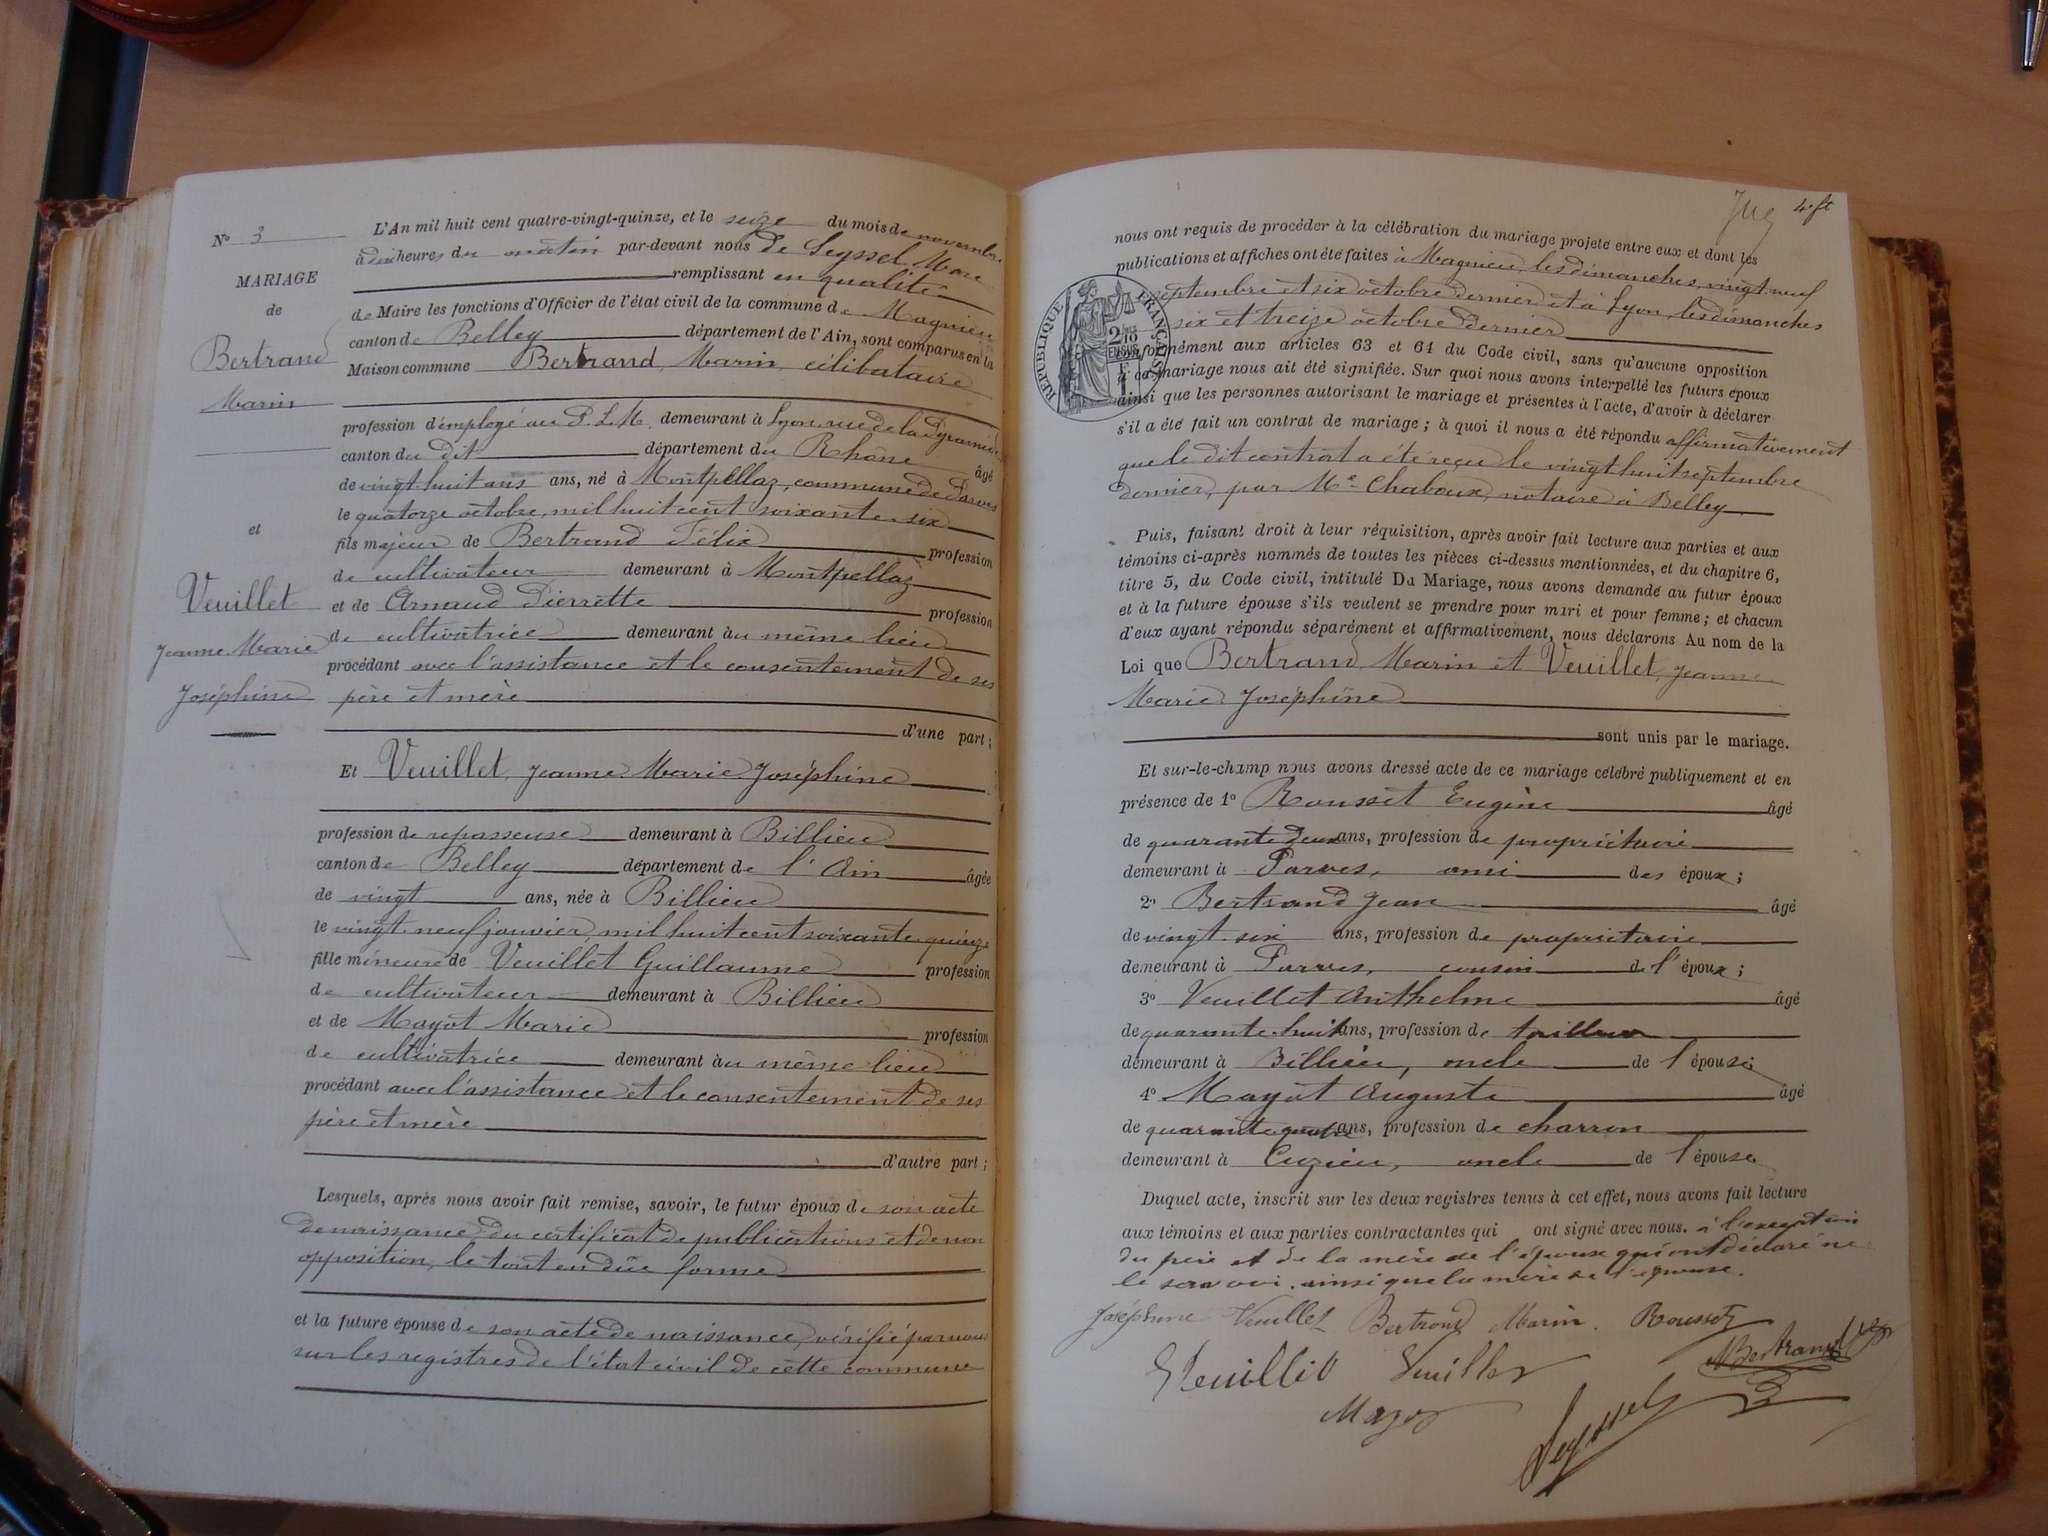 N° 3
MARIAGE
de
Bertrand
Marin
et
Veuillet
Jeanne Marie
Joséphine
L'An mil huit cent quatre-vingt-quinze, et le seize du mois de novembre
à dix heures du matin par-devant nous de Seyssel Marc
remplissant en qualité
de Maire les fonctions d'Officier de l'état civil de la commune de Magnieu
canton de Belley département de l'Ain, sont comparus en la
Maison commune Bertrand, Marin, célibataire
profession d'employé au P.L.M. demeurant à Lyon, rue de la Pyramide
canton du dit département du Rhône âgé
de vingt huit ans ans, né à Montpellaz, commune de Parves
le quatorze octobre, mil huit cent soixante-six
fils majeur de Bertrand Félix profession
de cultivateur demeurant à Montpellaz
et de Arnaud Pierrette profession
de cultivatrice demeurant au même lieu
procédant avec l'assistance et le consentement de ses
père et mère
d'une part;
Et Veuillet, Jeanne Marie Joséphine
profession de repasseuse demeurant à Billieu
canton de Belley département de l'Ain âgée
de vingt ans, née à Billieu
le vingt-neuf janvier mil huit cent soixante-quinze
fille mineure de Veuillet Guillaume profession
de cultivateur demeurant à Billieu
et de Mayot Marie profession
de cultivatrice demeurant au même lieu
procédant avec l'assistance et le consentement de ses
père et mère
d'autre part;
Lesquels, après nous avoir fait remise, savoir, le futur époux de son acte
de naissance, du certificat de publications et de non
opposition, le tout en dûe forme
et la future épouse de son acte de naissance, vérifié par nous
sur les registres de l'état civil de cette commune
4 ft
nous ont requis de procéder à la célébration du mariage projeté entre eux et dont les
publications et affiches ont été faites à Magnieu, les dimanches, vingt-neuf
septembre et six octobre dernier et à Lyon, les dimanches
six et treize octobre dernier
conformément aux articles 63 et 64 du Code civil, sans qu'aucune opposition
à ce mariage nous ait été signifiée. Sur quoi nous avons interpellé les futurs époux
ainsi que les personnes autorisant le mariage et présentes à l'acte, d'avoir à déclarer
s'il a été fait un contrat de mariage; à quoi il nous a été répondu affirmativement
que le dit contrat a été reçu le vingt huit septembre
dernier, par Me Chaboux, notaire à Belley
RÉPUBLIQUE FRANÇAISE
2/10 EN SUS
Puis, faisant droit à leur réquisition, après avoir fait lecture aux parties et aux
témoins ci-après nommés de toutes les pièces ci-dessus mentionnées, et du chapitre 6,
titre 5, du Code civil, intitulé Du Mariage, nous avons demandé au futur époux
et à la future épouse s'ils veulent se prendre pour mari et pour femme; et chacun
d'eux ayant répondu séparément et affirmativement, nous déclarons Au nom de la
Loi que Bertrand, Marin et Veuillet, Jeanne
Marie Joséphine
sont unis par le mariage.
Et sur-le-champ nous avons dressé acte de ce mariage célébré publiquement et en
présence de 1° Rousset Eugène âgé
de quarante deux ans, profession de propriétaire
demeurant à Parves, ami des époux;
2° Bertrand Jean âgé
de vingt-six ans, profession de propriétaire
demeurant à Parves, cousin de l'époux;
3° Veuillet Anthelme âgé
de quarante-huit ans, profession de tailleur
demeurant à Billieu, oncle de l'épouse
4° Mayot Auguste âgé
de quarante quatre ans, profession de charron
demeurant à Cuzieu, oncle de l'épouse
Duquel acte, inscrit sur les deux registres tenus à cet effet, nous avons fait lecture
aux témoins et aux parties contractantes qui ont signé avec nous. à l'exception
du père et de la mère de l'époux qui ont déclaré ne
le savoir. ainsi que la mère de l'épouse.
Joséphine Veuillet Bertrand Marin. Rousset
Veuillet Veuillet Bertrand
Mayot Seyssel